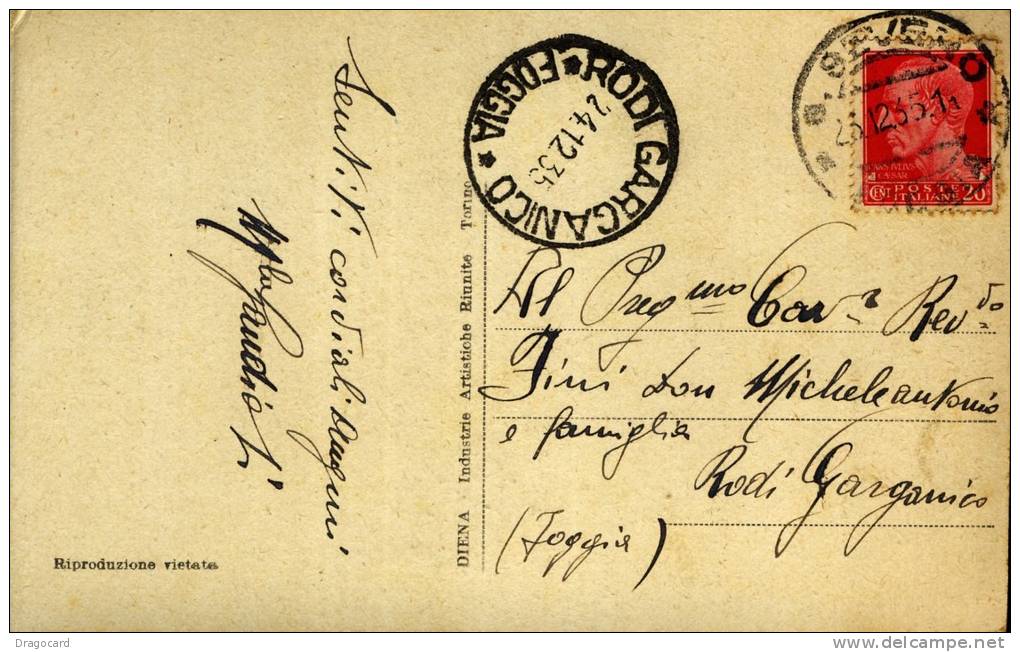 Sentiti cordiali auguri
RODI GARGANICO
* FOGGIA *
24.12.35
S. SEVERO
12.35.
CAIVS IVLIVS
CAESAR
CENT POSTE 20
ITALIANE
Al Preg.mo Cav.r Rev.do
Fini Don Micheleantonio
e famiglia
Rodi Garganico
(Foggia)
DIENA - Industrie Artistiche Riunite - Torino
Riproduzione vietata
Dragocard
www.delcampe.net